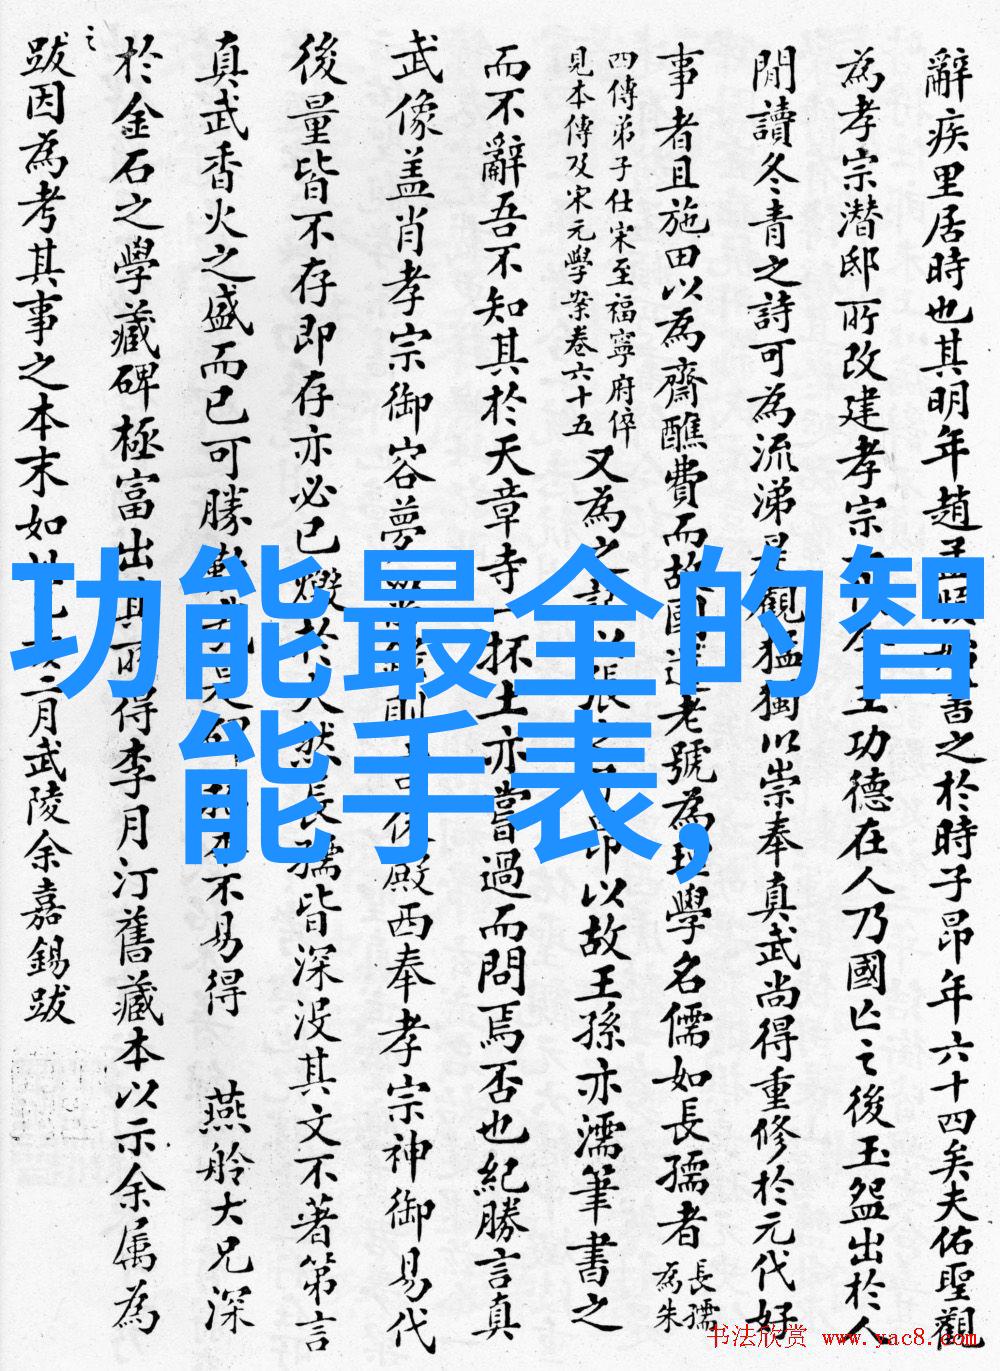 辭疾里居時也其明年趙孟頫書之於時子昂年六十四矣夫佑聖觀
為孝宗潛邸所改建孝宗王功德在人乃國亡之後玉盌出於人
間讀冬青之詩可為流涕是觀猶獨以崇奉真武尚得重修於元代好
事者且施田以為齋醮費而故國遺老號為理學名儒如長孺者
長孺
為朱
四傳弟子仕宋至福寧府倅
見本傳及宋元學案卷六十五
又為之記以張之子昂以故王孫亦濡筆書之
而不辭吾不知其於天章寺一抔土亦嘗過而問焉否也紀勝言真
武像盖肖孝宗御容夢殿西奉孝宗神御易代
後量皆不存即存亦必已燬於火然長孺皆深没其文不著第言
真武香火之盛而已可勝不易得 燕舲大兄深
於金石之學藏碑極富出其所得李月汀舊藏本以示余属為
之
跋因為考其事之本末如此二月武陵余嘉錫跋
功能最全的智
能手表,
书法欣赏 www.yac8.com